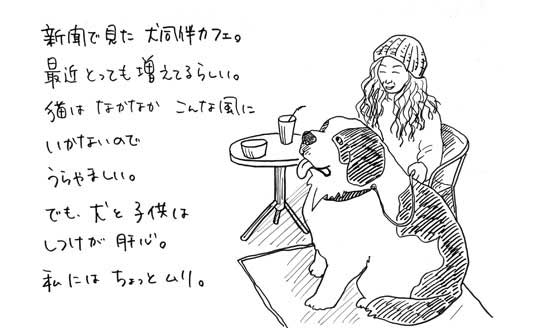 新聞で見た 犬同伴カフェ。
最近とっても増えてるらしい。
猫は なかなか こんな風に
いかないので
うらやましい。
でも、犬と子供は
しつけが 肝心。
私には ちょっとムリ。